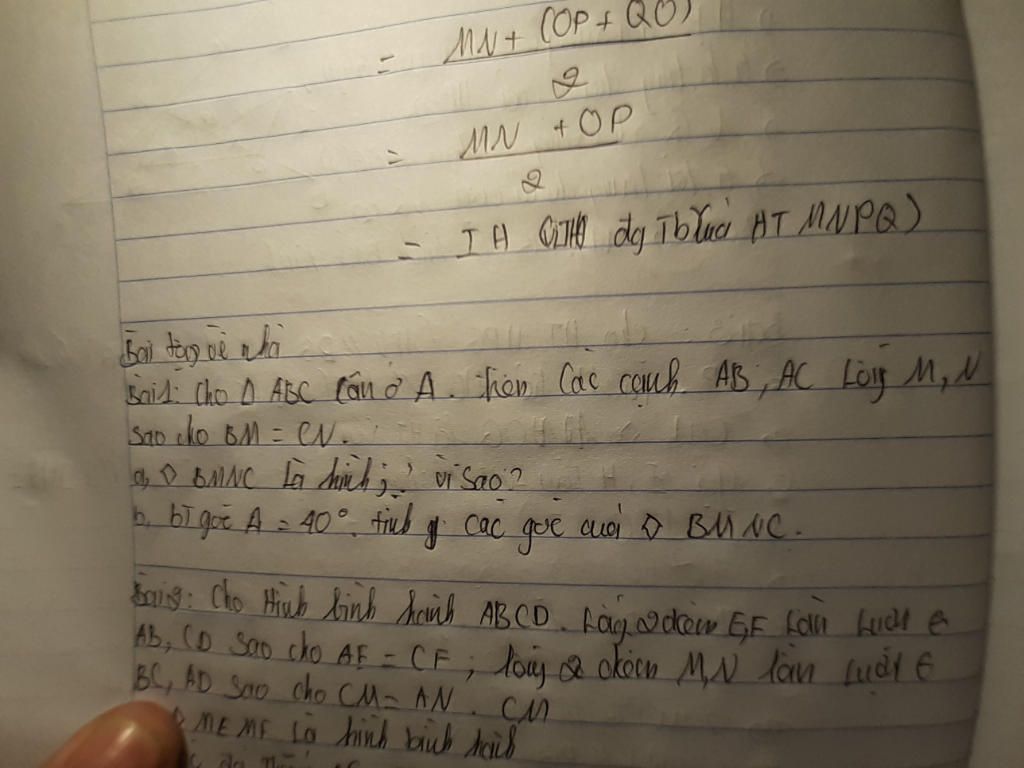 = MN + (OP + QO) / 2
= MN + OP / 2
= IH ( đg Tb HT MNPQ)
Bài tập về nhà
Bài 1: Cho Δ ABC cân ở A. Trên các cạnh AB, AC lấy M, N
sao cho BM = CN.
a, ◊ BMNC là hình j; vì sao?
b, bt góc A = 40°. tính các góc của ◊ BMNC.
Bài 2: Cho Hình bình hành ABCD. Lấy 2 điểm E, F lần lượt ∈
AB, CD sao cho AE = CF; lấy 2 điểm M, N lần lượt ∈
BC, AD sao cho CM = AN. CM
MENF là hình bình hành